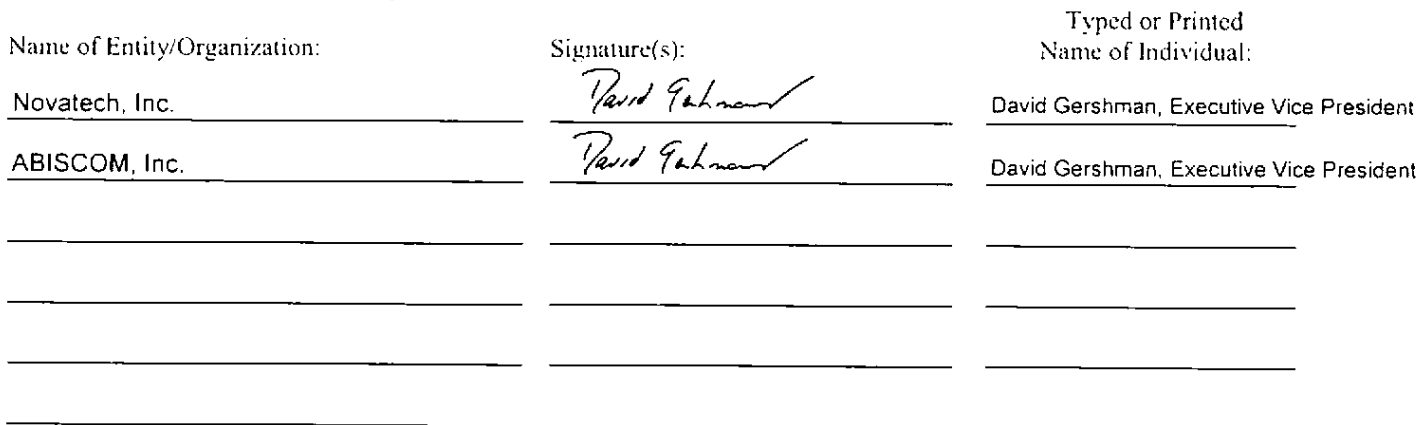 Typed or Printed
Name of Entity/Organization: Signature(s): Name of Individual:
Novatech, Inc. David Gershman David Gershman, Executive Vice President
ABISCOM, Inc. David Gershman David Gershman, Executive Vice President